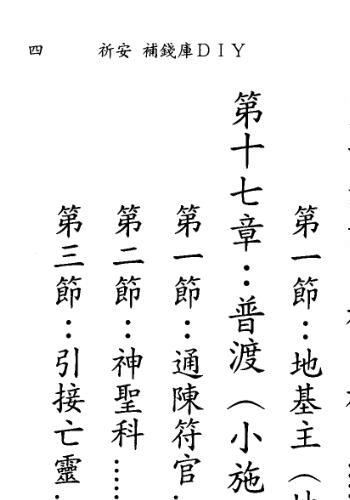 四 祈安 補錢庫ＤＩＹ
第一節：地基主（
第十七章：普渡（小施
第一節：通陳符官
第二節：神聖科……
第三節：引接亡靈